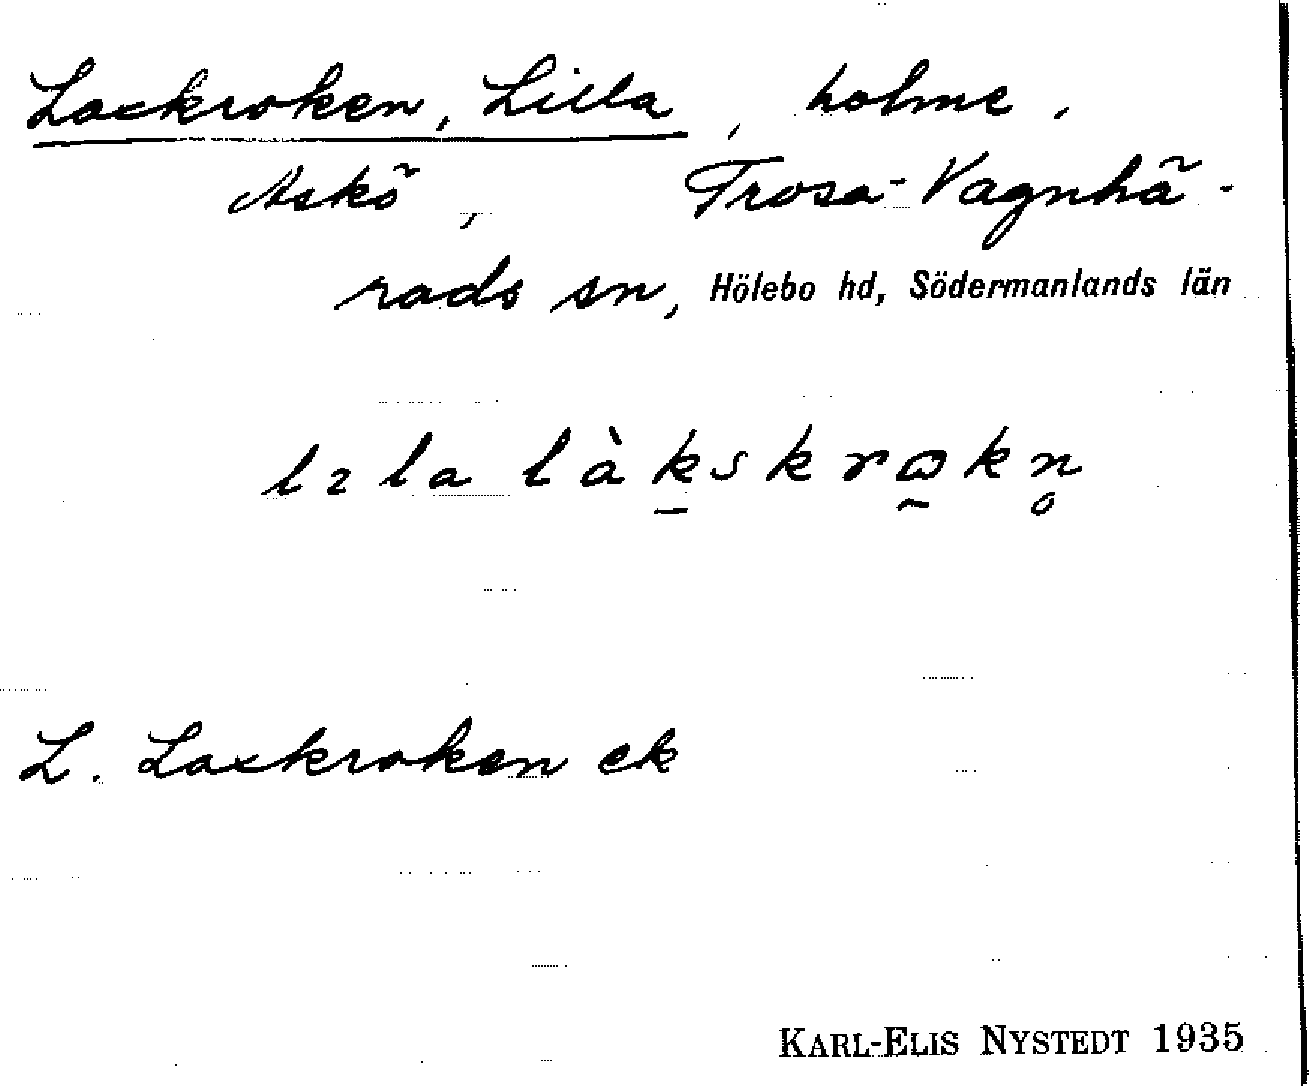 Laxkroken, Lilla, holme.
Askö, Trosa-Vagnhä-
rads sn, Hölebo hd, Södermanlands län
lɩla làk̠skrꙍ̰kn̥
L. Laxkroken ek
KARL-ELIS NYSTEDT 1935